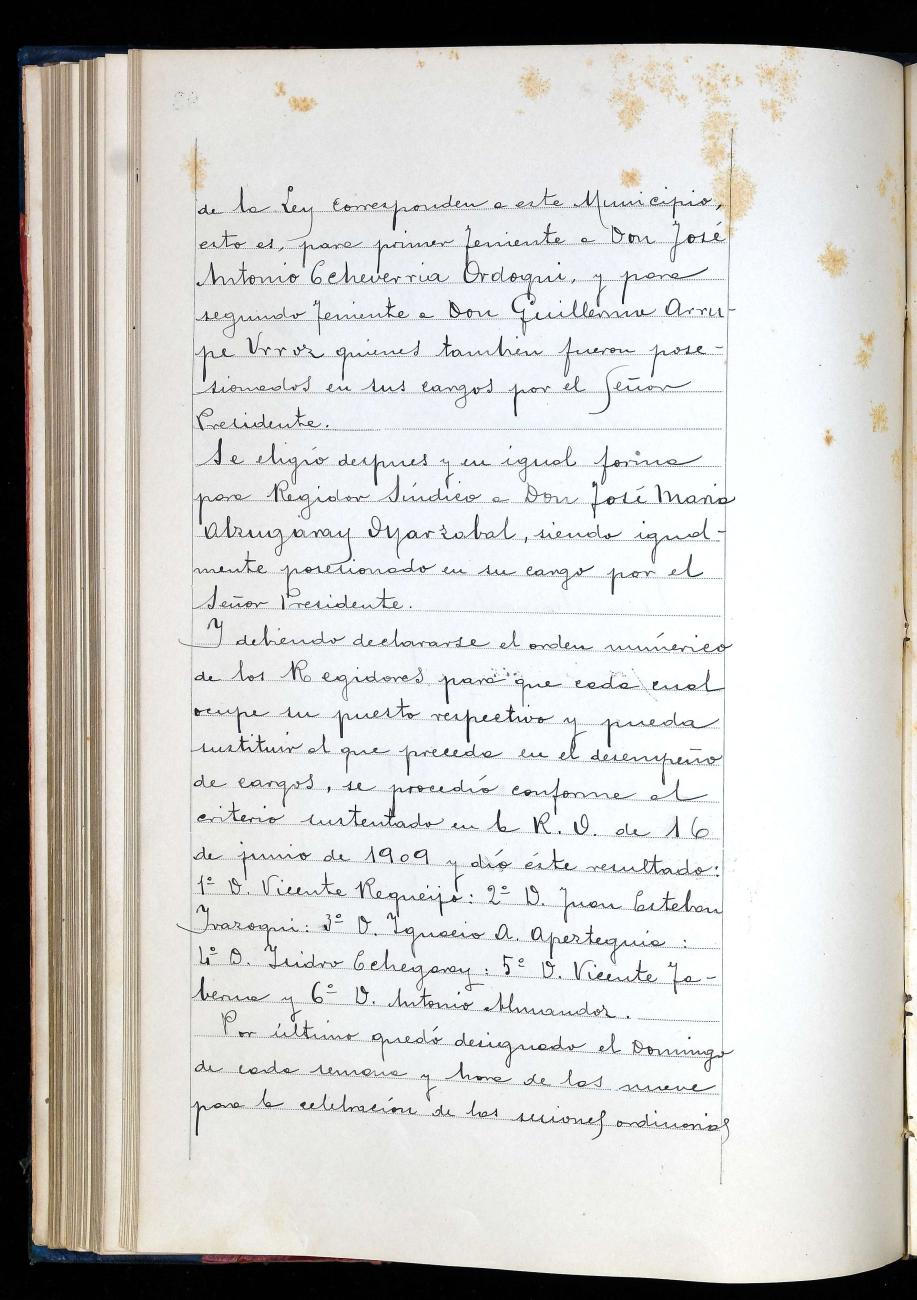 de la Ley corresponden a este Municipio,
esto es, para primer Teniente a Don José
Antonio Echeverria Ordoqui, y para
segundo Teniente a Don Guillermo Arru-
pe Urroz quienes tambien fueron pose-
sionados en sus cargos por el Señor
Presidente.
Se eligió despues y en igual forma
para Regidor Síndico a Don José Maria
Alzugaray Oyarzabal, siendo igual-
mente posesionado en su cargo por el
Señor Presidente.
Y debiendo declararse el orden numérico
de los Regidores para que cada cual
ocupe su puesto respectivo y pueda
sustituir al que preceda en el desempeño
de cargos, se procedió conforme al
criterio sustentado en la R. O. de 16
de junio de 1909 y dió éste resultado:
1º D. Vicente Requeijo: 2º D. Juan Esteban
Irazoqui: 3º D. Ignacio A. Apezteguia :
4º D. Isidro Echegaray : 5º D. Vicente Ta-
berna y 6º D. Antonio Almandoz.
Por último quedó designado el Domingo
de cada semana y hora de las nueve
para la celebración de las sesiones ordinarias